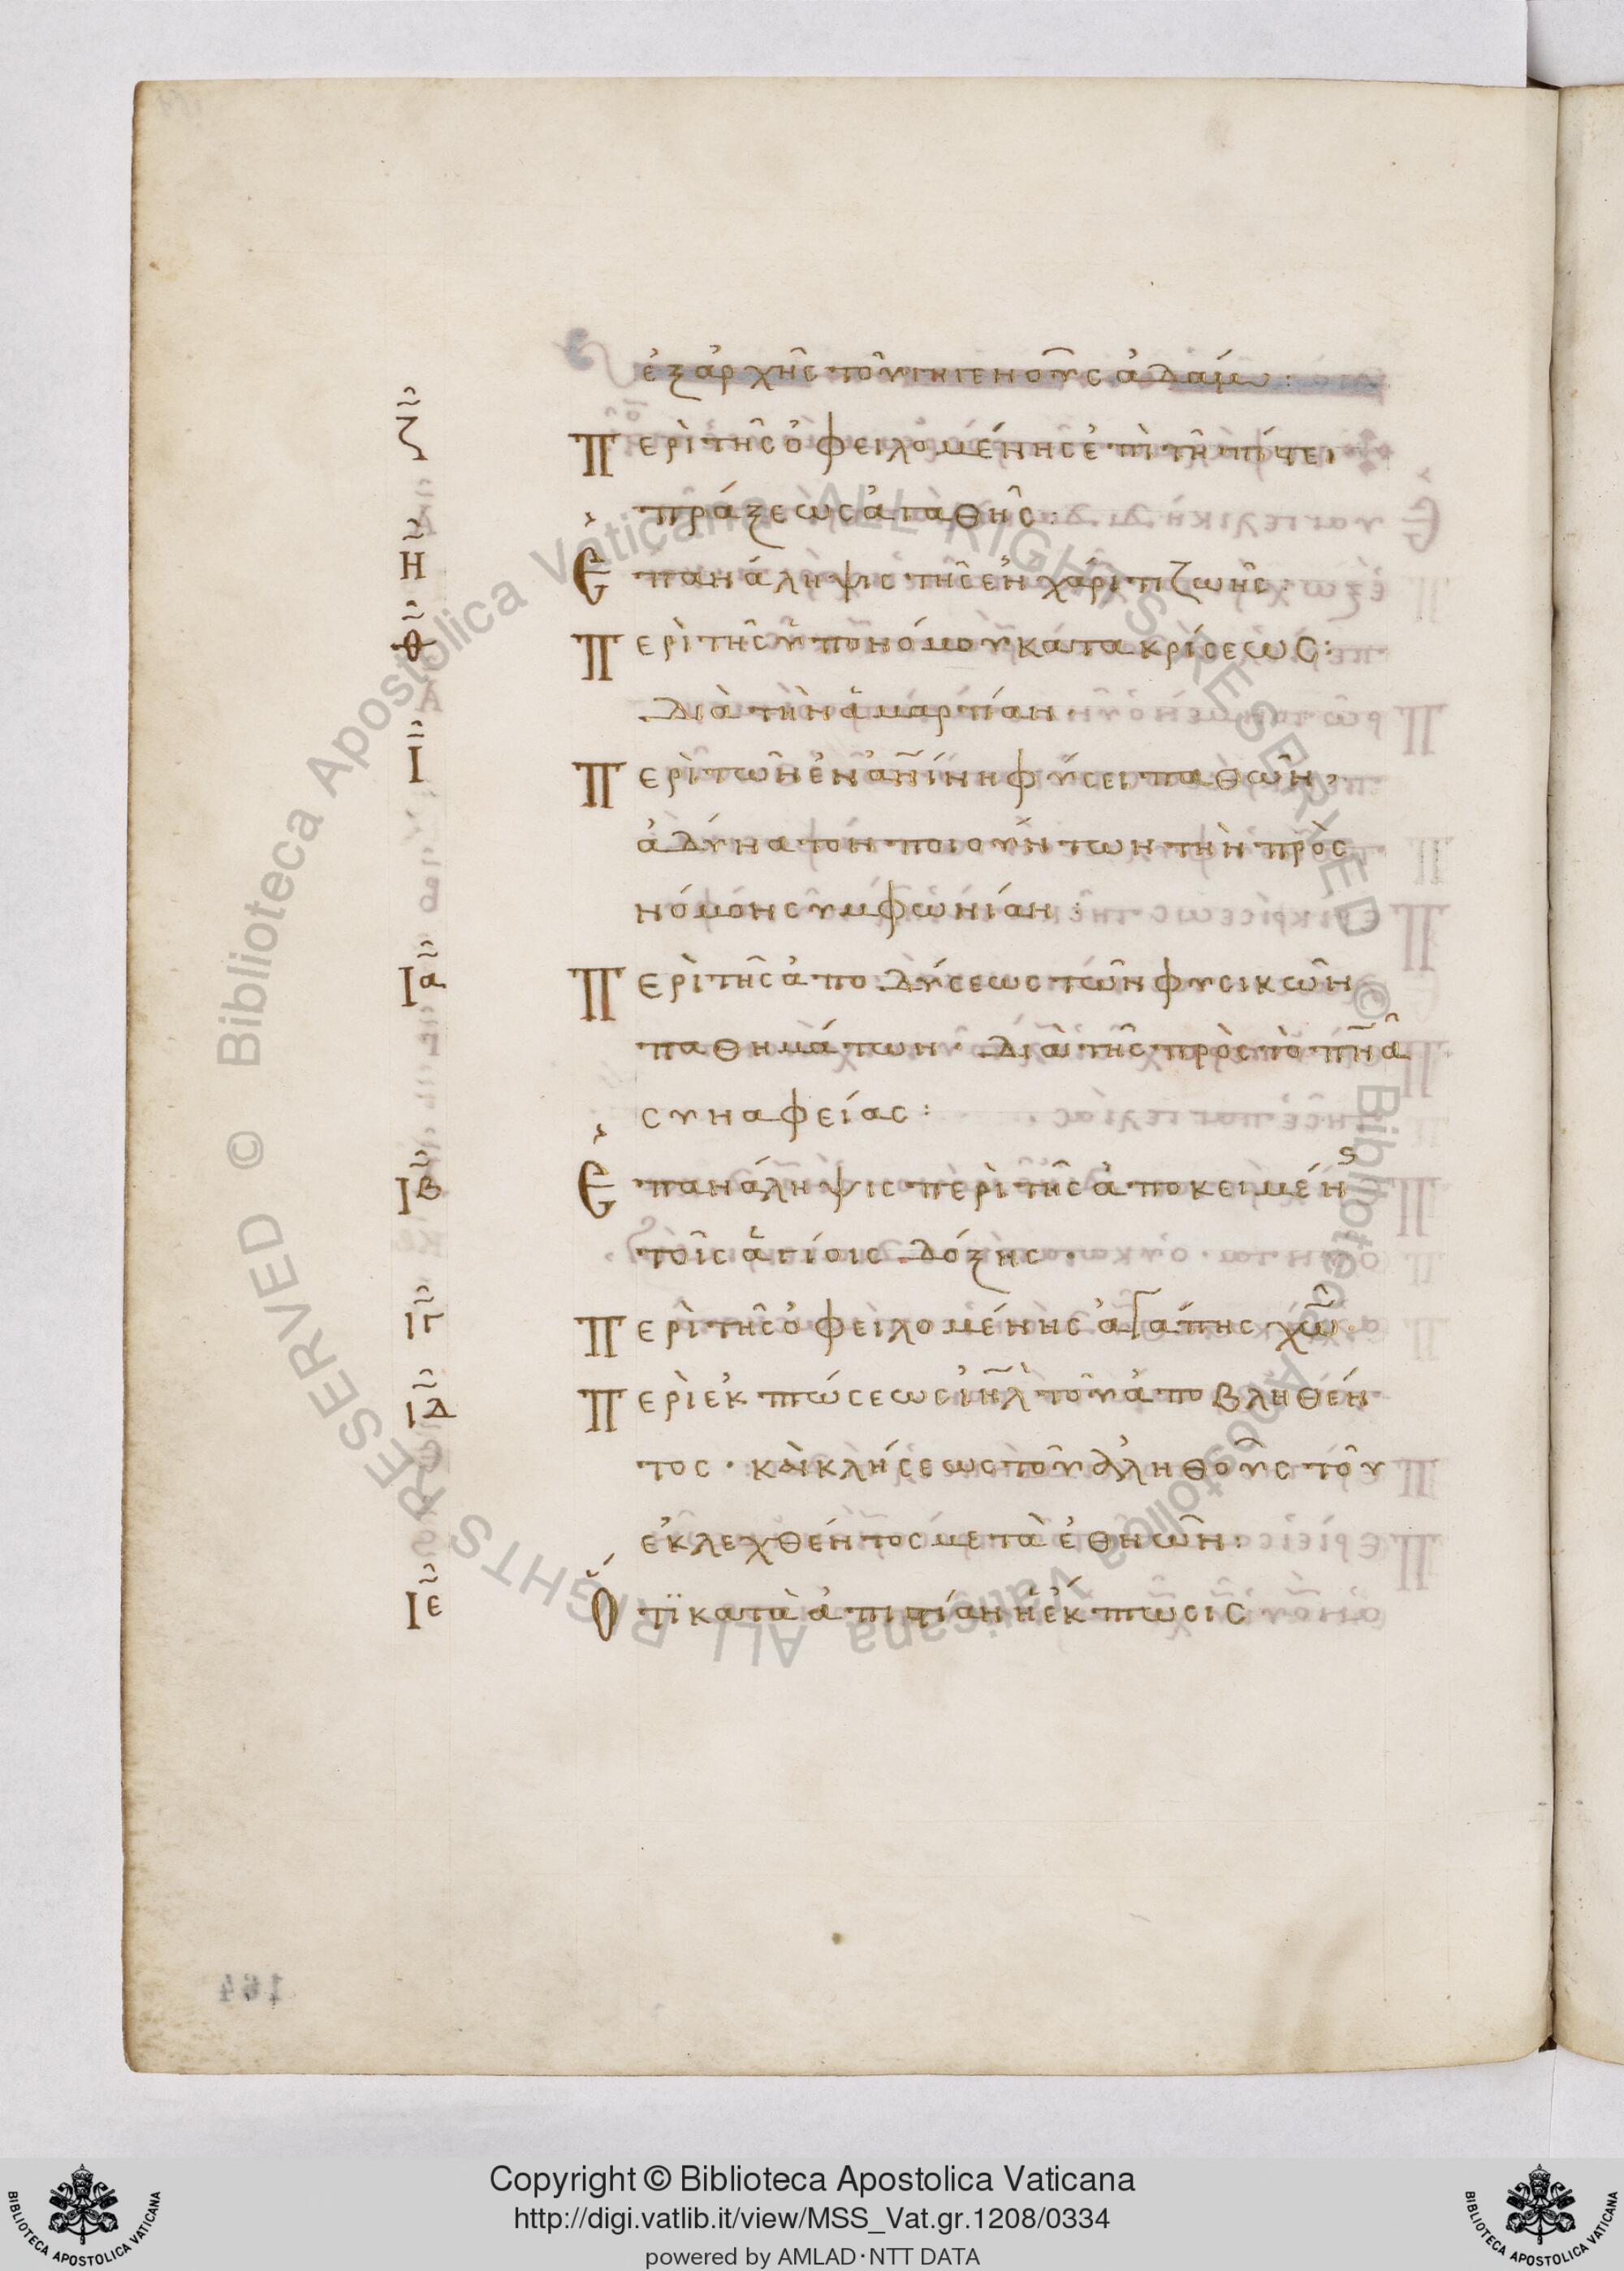 ἐξ ἀρχῆς τοῦ γηγενοῦς ἀδάμ :
Ζ Περὶ τῆς ὀφειλομένης ἐπὶ τῆ πίστει
πράξεως ἀγαθῆς ·
Η Ἐπανάληψις τῆς ἐν χάριτι ζωῆς :
Θ Περὶ τῆς ὑπὸ νόμου κατακρίσεως :
διὰ τὴν ἁμαρτίαν ·
Ι Περὶ τῶν ἐν ἀνίνη φύσει παθῶν ,
ἀδύνατον ποιούντων τὴν πρὸς
νόμον συμφωνίαν :
ΙΑ Περὶ τῆς ἀπολύσεως τῶν φυσικῶν
παθημάτων · διὰ τῆς πρὸς τὸ πνα
συναφείας :
ΙΒ Ἐπανάληψις περὶ τῆς ἀποκειμέν
τοῖς ἁγίοις δόξης ·
ΙΓ Περὶ τῆς ὀφειλομένης ἀγάπης χω
ΙΔ Περὶ ἐκπτώσεως ιηλ τοῦ ἀποβληθέν
τος · καὶ κλήσεως τοῦ ἀληθοῦς τοῦ
ἐκλεχθέντος μετὰ ἐθνῶν :
ΙΕ Ὅτι κατὰ ἀπιστίαν ἡ ἔκπτωσις
164
Copyright © Biblioteca Apostolica Vaticana
http://digi.vatlib.it/view/MSS_Vat.gr.1208/0334
powered by AMLAD·NTT DATA
BIBLIOTECA APOSTOLICA VATICANA
BIBLIOTECA APOSTOLICA VATICANA
© Biblioteca Apostolica Vaticana ALL RIGHTS RESERVED
© Biblioteca Apostolica Vaticana ALL RIGHTS RESERVED